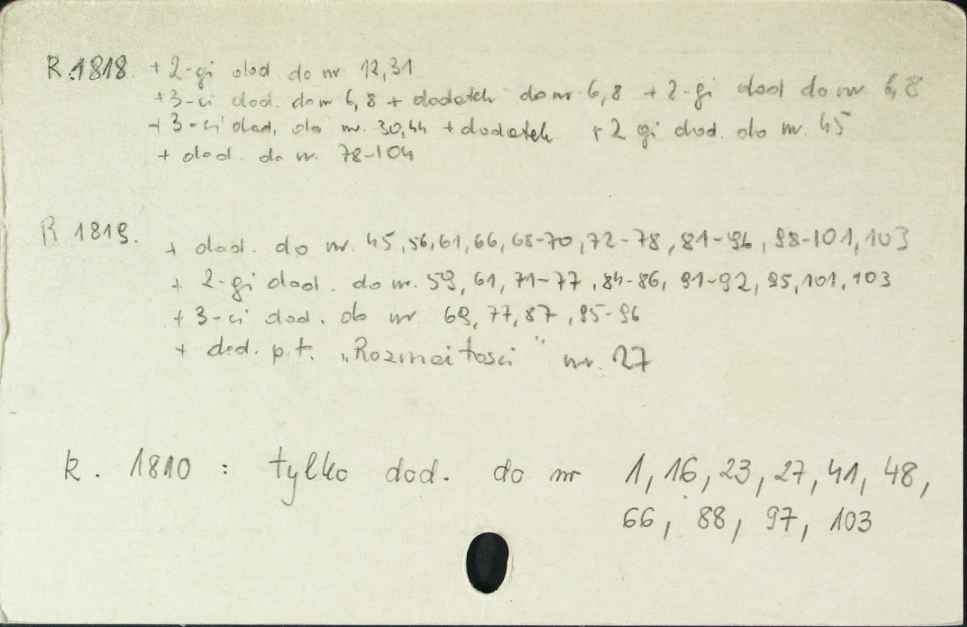 R.1818. + 2-gi dod do nr 12,31
+3-ci dod. do nr 6,8 + dodatek do nr 6,8 + 2-gi dod do nr 6,8
+ 3-ci dod. do nr. 30,44 + dodatek + 2 gi dod. do nr. 45
+ dod. do nr. 78-104
R 1819. + dod. do nr. 45,56,61,66,68-70,72-78,81-96,98-101,103
+ 2-gi dod. do nr. 59,61,71-77,84-86,91-92,95,101,103
+ 3-ci dod. do nr 69,77,87,95-96
+ dod. p.t. „Rozmaitości" nr. 27
k. 1810 : tylko dod. do nr 1,16,23,27,41,48,
66, 88, 97, 103